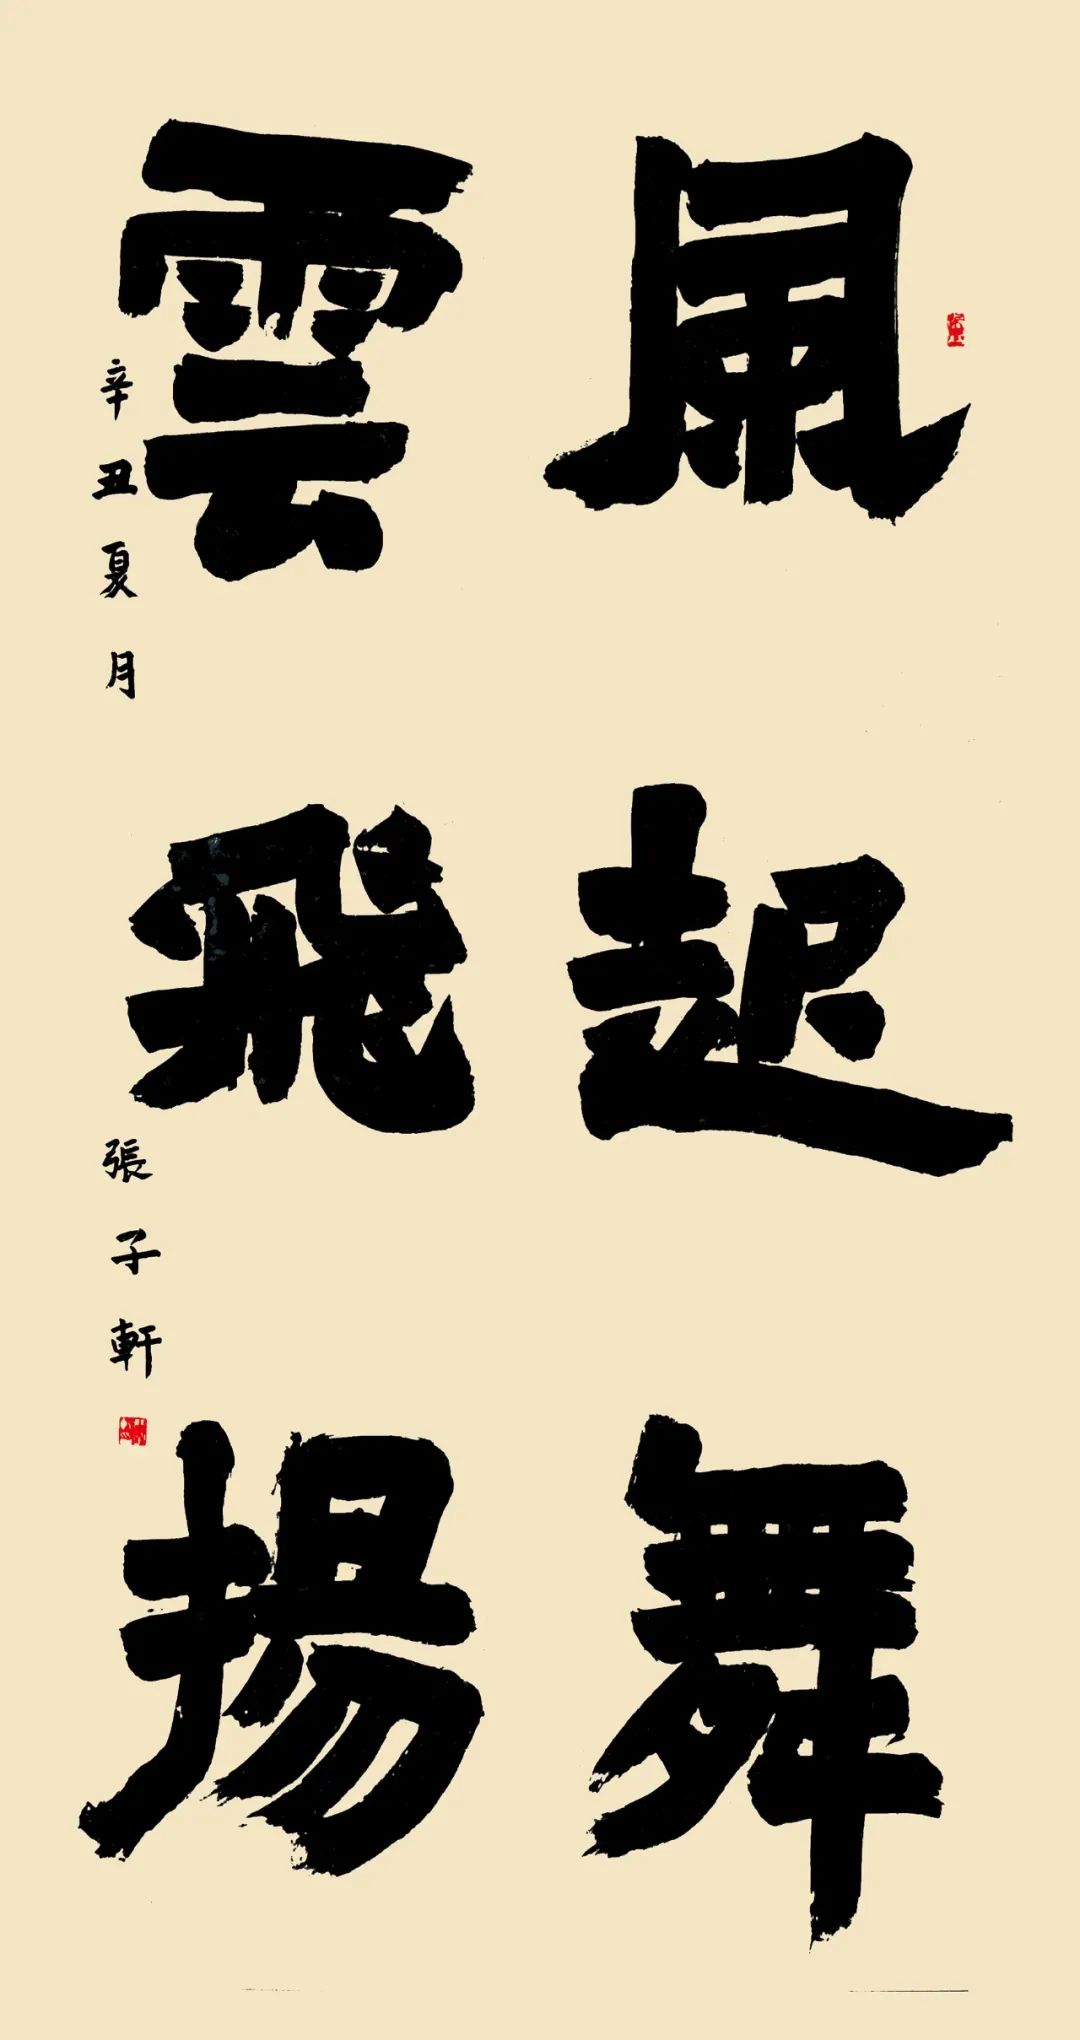 風起舞
雲飛揚
辛丑夏月
張子軒